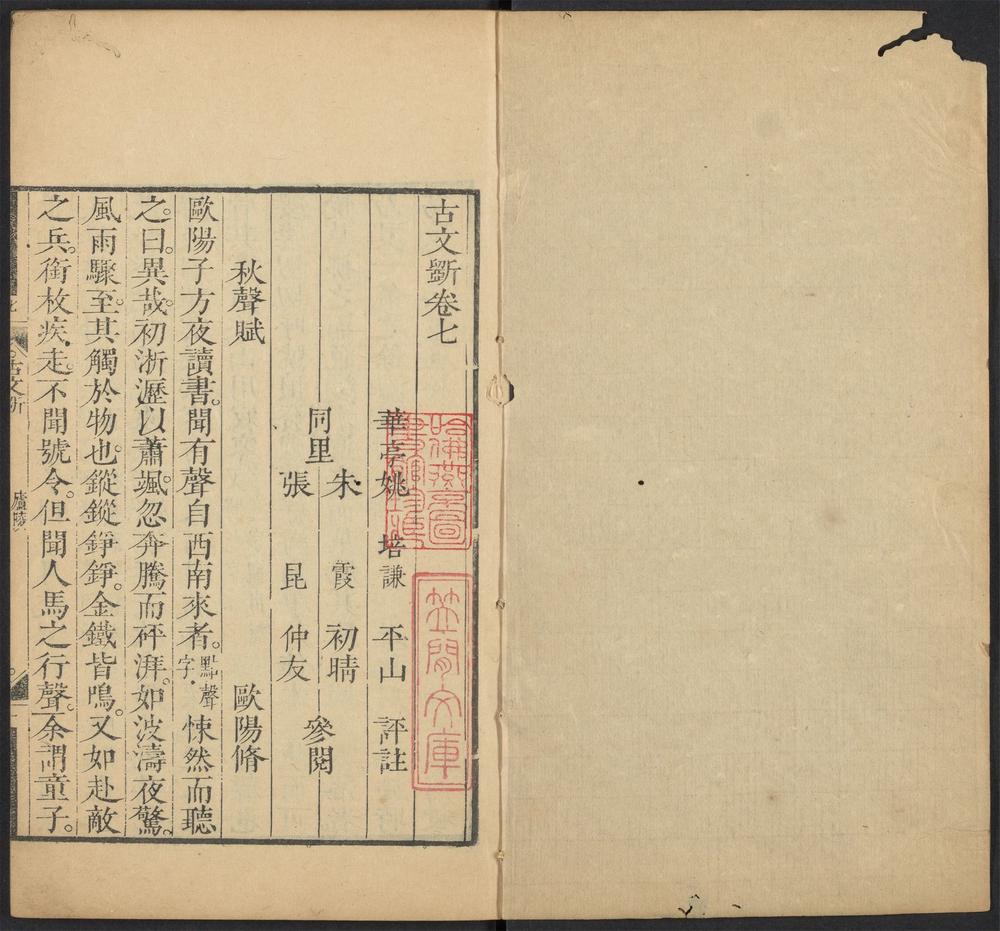 古文斲卷七
華亭姚培謙平山評註
同里
朱霞初晴
張昆仲友
參閱
秋聲賦
歐陽脩
歐陽子方夜讀書。聞有聲自西南來者。點聲字。悚然而聽
之。曰。異哉。初淅瀝以蕭颯。忽奔騰而砰湃。如波濤夜驚。
風雨驟至。其觸於物也。鏦鏦錚錚。金鐵皆鳴。又如赴敵
之兵。銜枚疾走。不聞號令。但聞人馬之行聲。余謂童子。
古文斲
七
廬陵
一
哈佛燕京圖書館珍藏
笠閒文庫